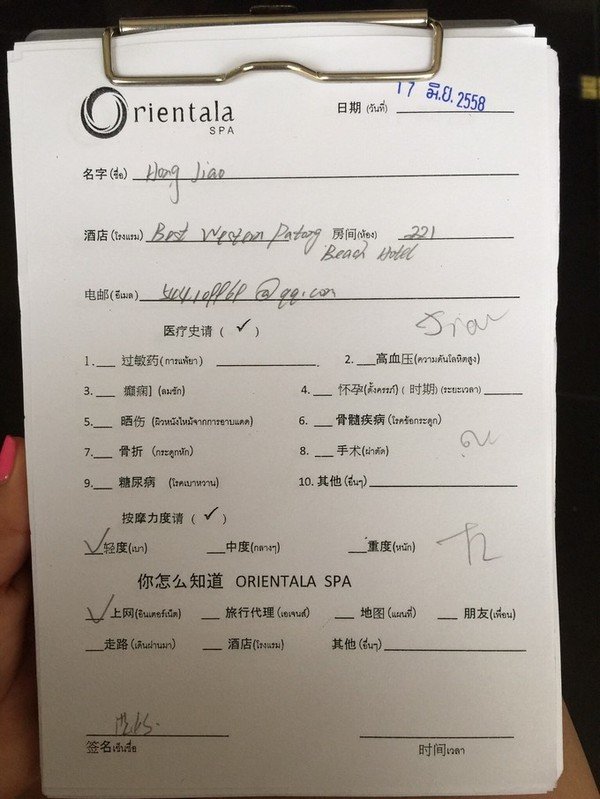 Orientala
SPA
日期 (วันที่) 17 มิ.ย. 2558
名字(ชื่อ) Hong Jiao
酒店(โรงแรม) Best Western Patong 房间(ห้อง) 221
Beach Hotel
电邮(อีเมล) @qq.com
医疗史请 ( ✓ )
1. ___ 过敏药(การแพ้ยา) 2. ___高血压(ความดันโลหิตสูง)
3. ___ 癫痫] (ลมชัก) 4. ___ 怀孕(ตั้งครรภ์) ( 时期) (ระยะเวลา)______
5. ___ 晒伤 (ผิวหนังไหม้จากการอาบแดด) 6. ___ 骨髓疾病(โรคข้อกระดูก)
7. ___ 骨折 (กระดูกหัก) 8. ___ 手术(ผ่าตัด)
9. ___ 糖尿病 (โรคเบาหวาน) 10. 其他(อื่นๆ)______
按摩力度请 ( ✓ )
✓轻度(เบา) ___中度(กลางๆ) ___重度(หนัก)
你怎么知道 ORIENTALA SPA
✓上网(อินเตอร์เน็ต) ___ 旅行代理(เอเจนส์) ___ 地图(แผนที่) ___ 朋友(เพื่อน)
___走路(เดินผ่านมา) ___ 酒店(โรงแรม) 其他(อื่นๆ)______
签名เซ็นชื่อ 时间เวลา